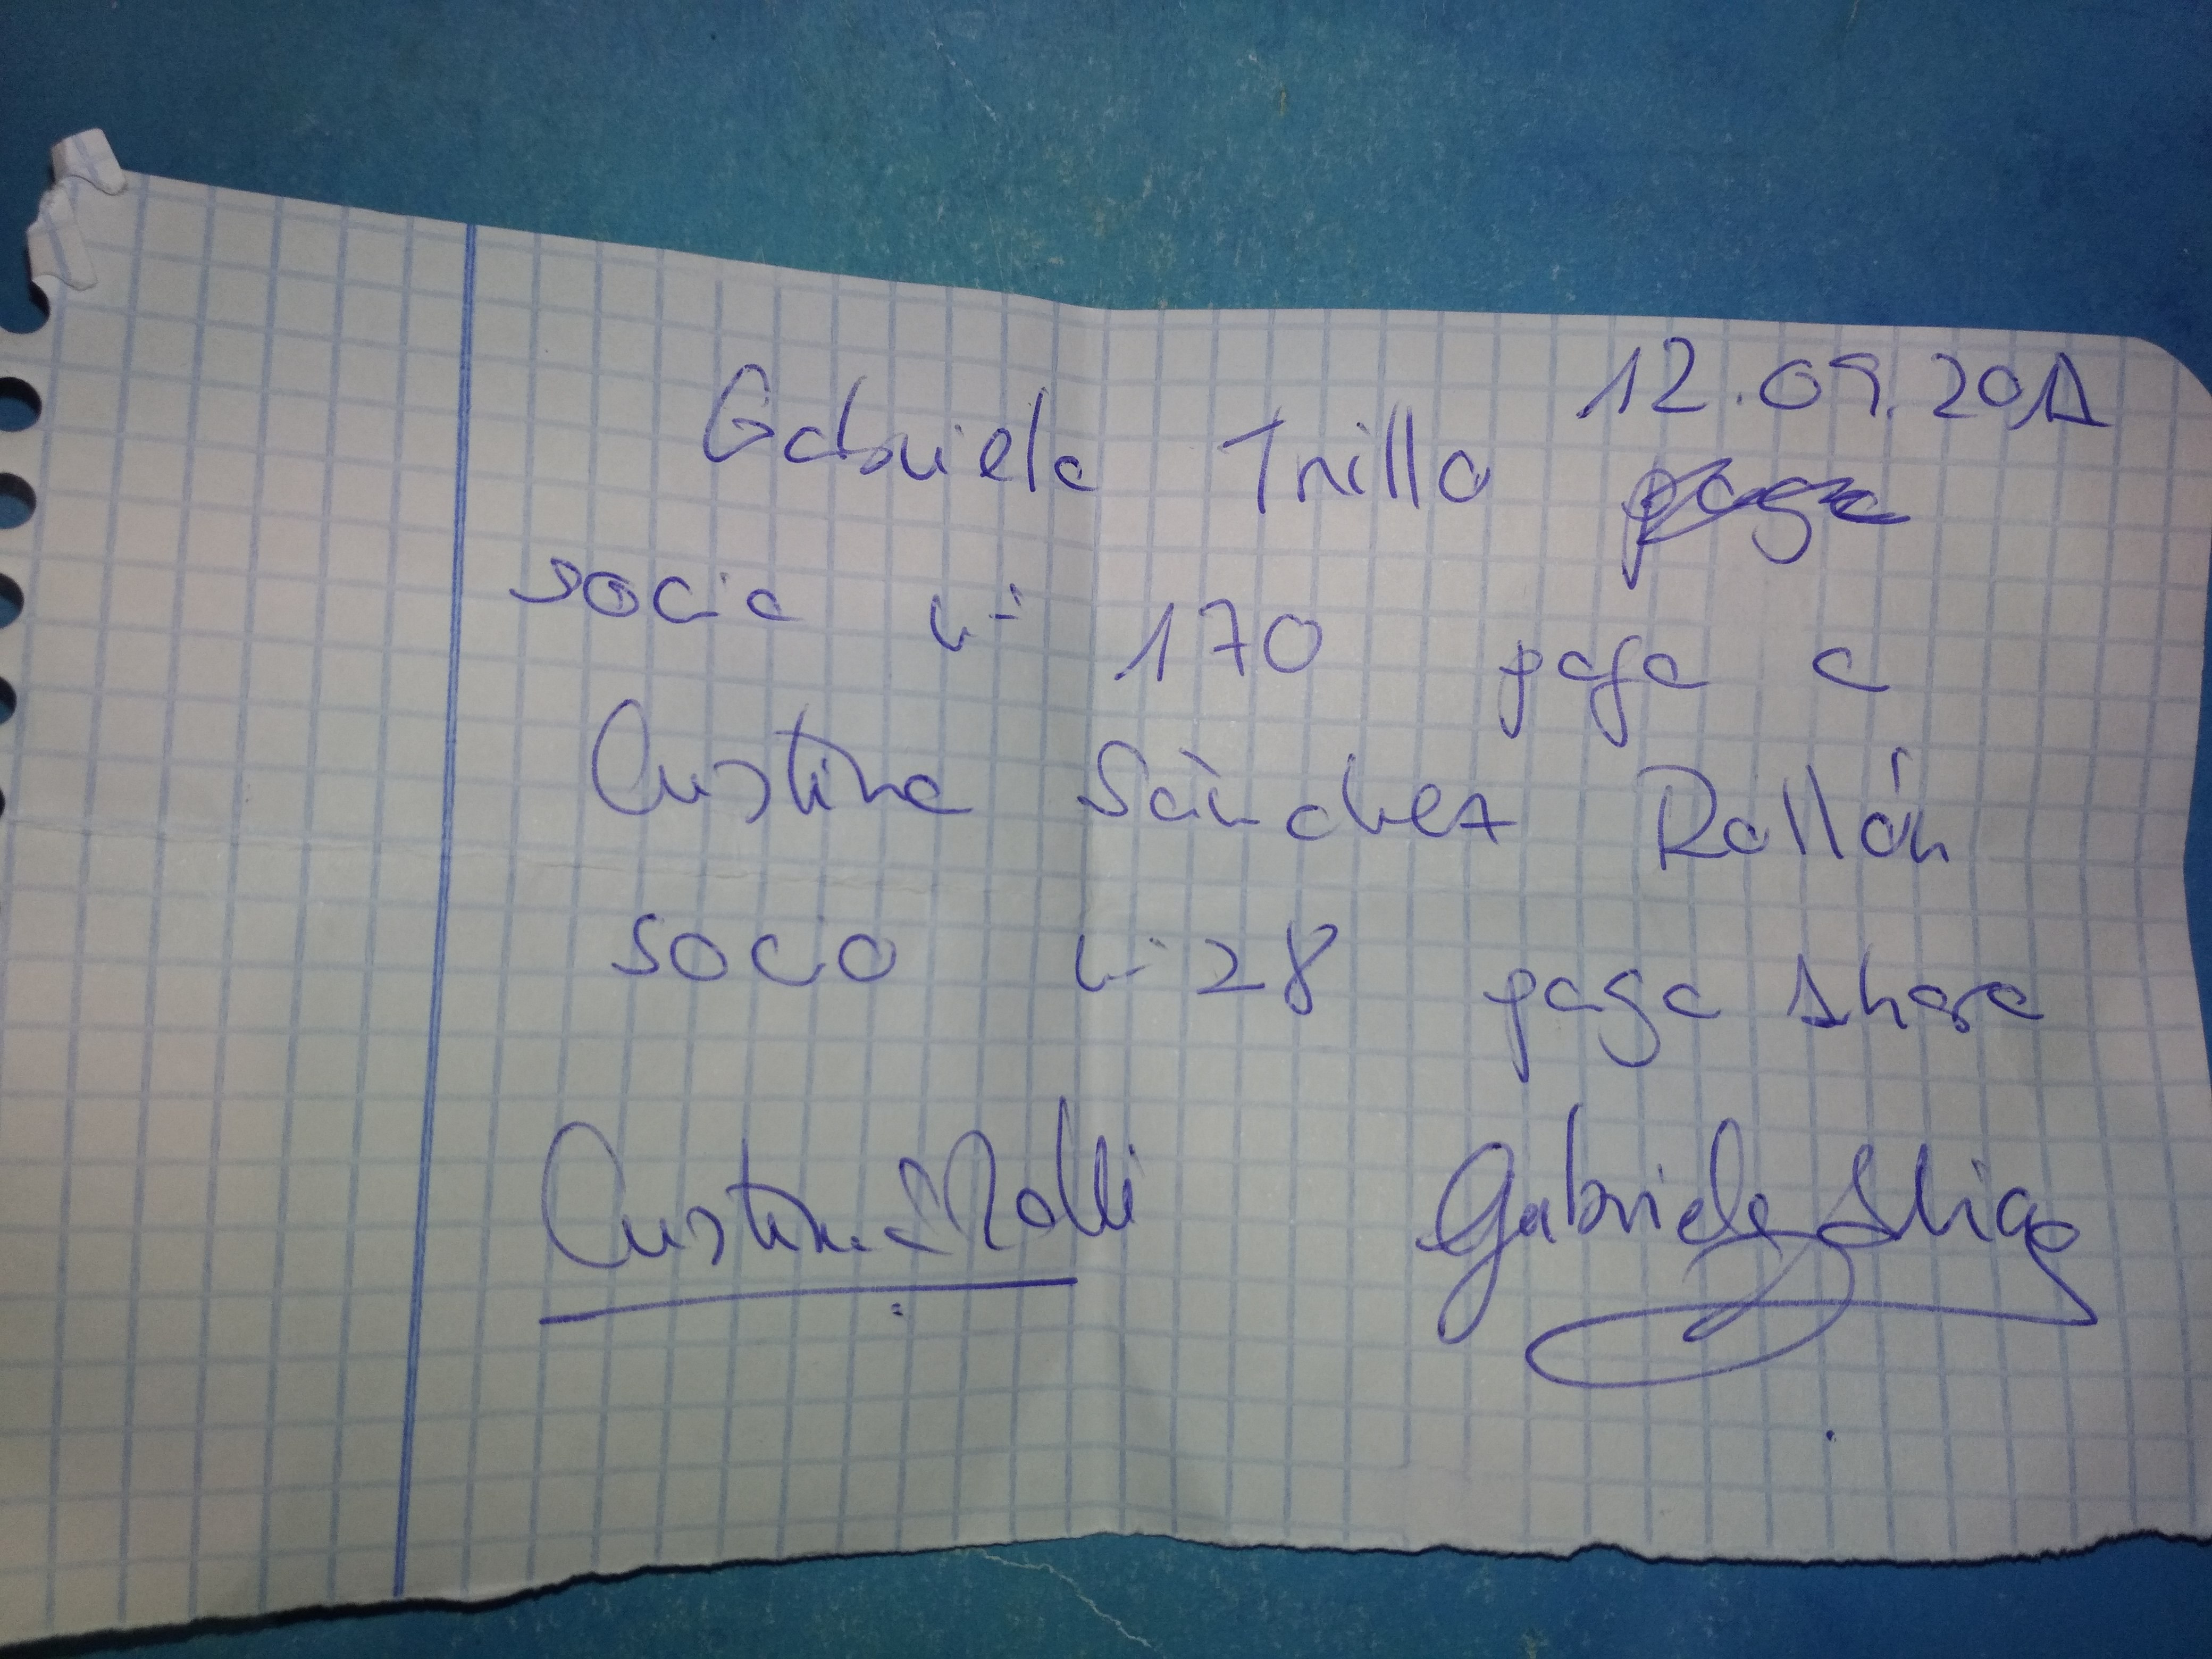 12.09.201
Gabriela Trillo paga
socia nº 170 paga a
Cristina Sánchez Rollán
socio nº 28 paga 1 hora
Cristina S Rolli
Gabriela